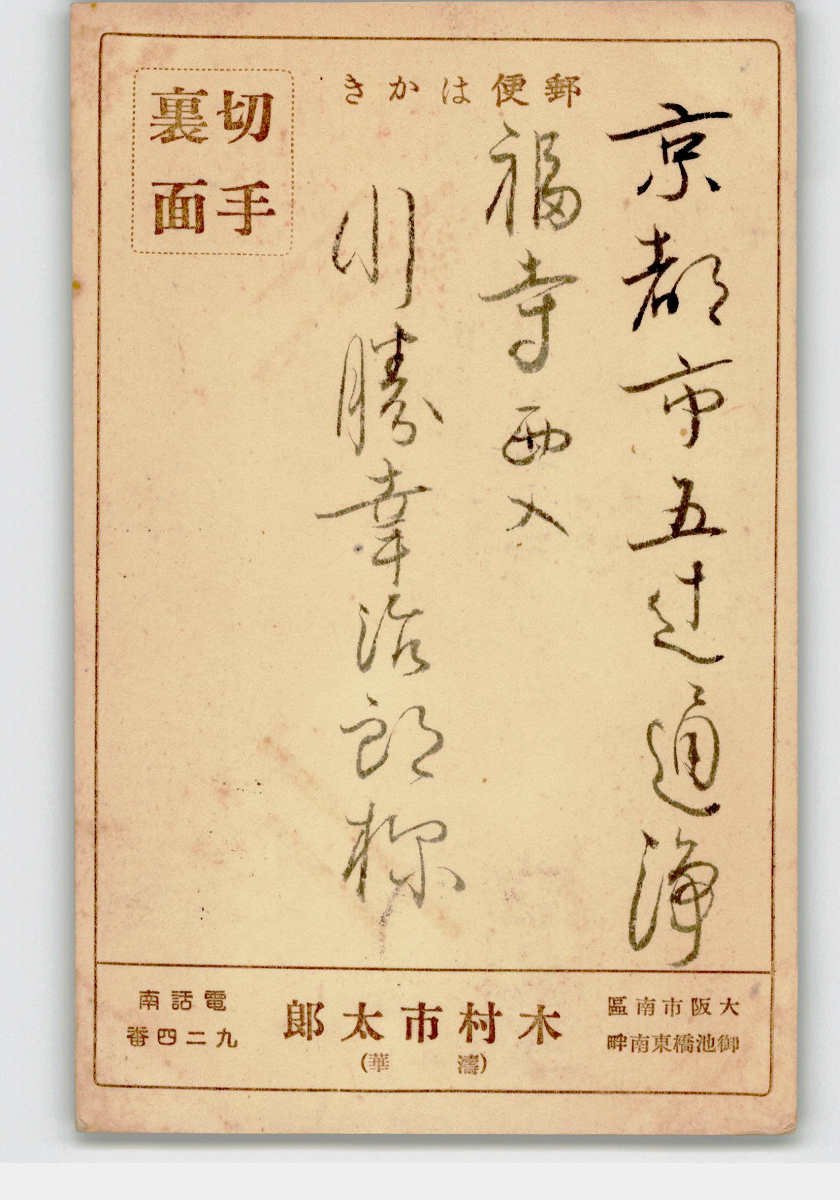 郵便はかき
切手
裏面
京都市五辻通浄
福寺西入
川勝幸治郎様
大阪市南區
御池橋東南畔
木村市太郎
(濤華)
電話南
九二四番